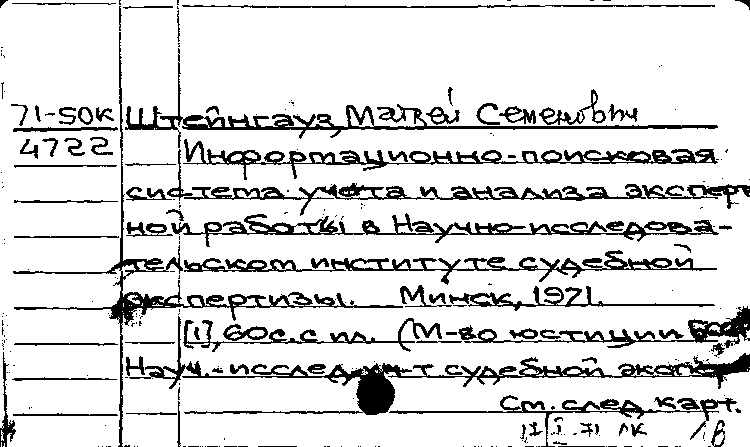 71-50К Штейнгауз, Матвей Семенович
4722 Информационно-поисковая
система учета и анализа эксперт
ной работы в Научно-исследова-
тельском институте судебной
экспертизы. Минск, 1971.
[1], 60с. с ил. (М-во юстиции БССР
Науч.-исслед. ин-т судебной экспер
См. след. карт.